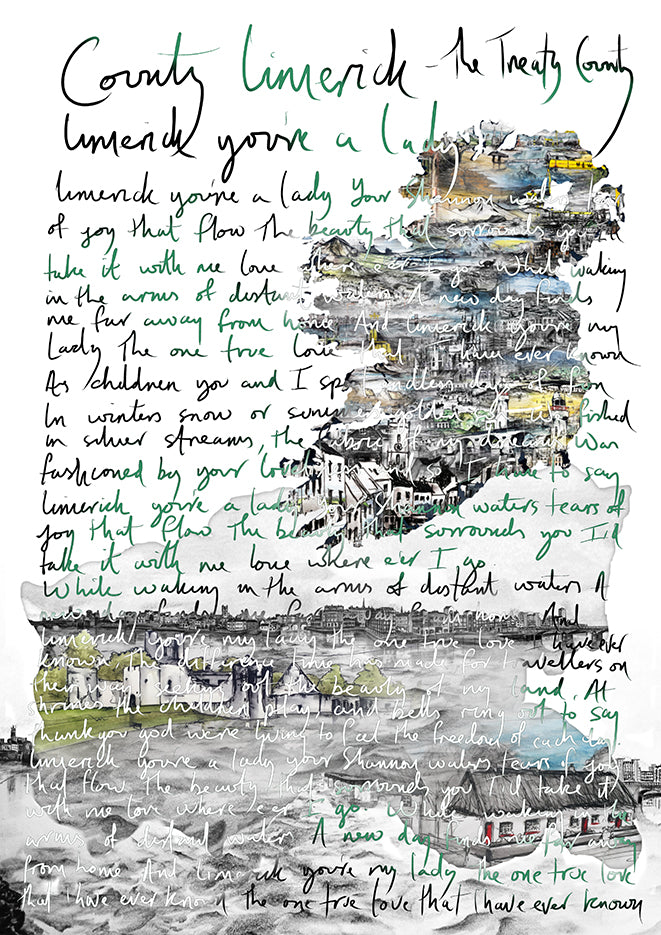 County Limerick - The Treaty County
Limerick you're a lady
Limerick you're a lady Your Shannon waters
of joy that flow The beauty that surrounds you
take it with me love where e'er I go While waking
in the arms of distant waters A new day finds
me far away from home And Limerick you're my
Lady The one true love that I have ever known
As children you and I spent endless days of fun
In winters snow or summers golden we fished
in silver streams, the fabric of my dreams Was
fashioned by your and so I came to say
Limerick you're a lady your Shannon waters tears of
joy that flow The beauty that surrounds you I'd
take it with me love where e'er I go
While waking in the arms of distant waters A
new day finds me far from home And
Limerick you're my lady the one true love I have ever
known, The difference time has made for travellers on
their way seeking out the beauty of my land, At
shrines the children pray, and bells ring out to say
Thank you god we're living to feel the freedom of each day.
Limerick you're a lady your Shannon waters tears of joy
that flow The beauty that surrounds you I'd take it
with me love where e'er I go While waking in the
arms of distant waters A new day finds me far away
from home And Limerick you're my lady the one true love
that I have ever known the one true love that I have ever known